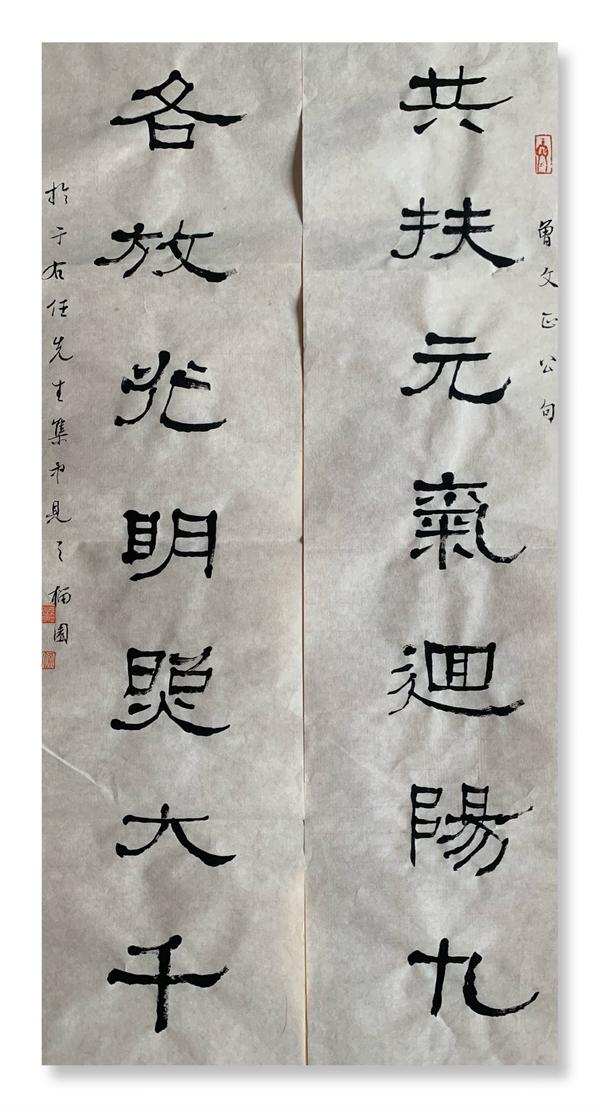 曾文正公句
共扶元氣迴陽九
各放光明照大千
於于右任先生集中見之 園